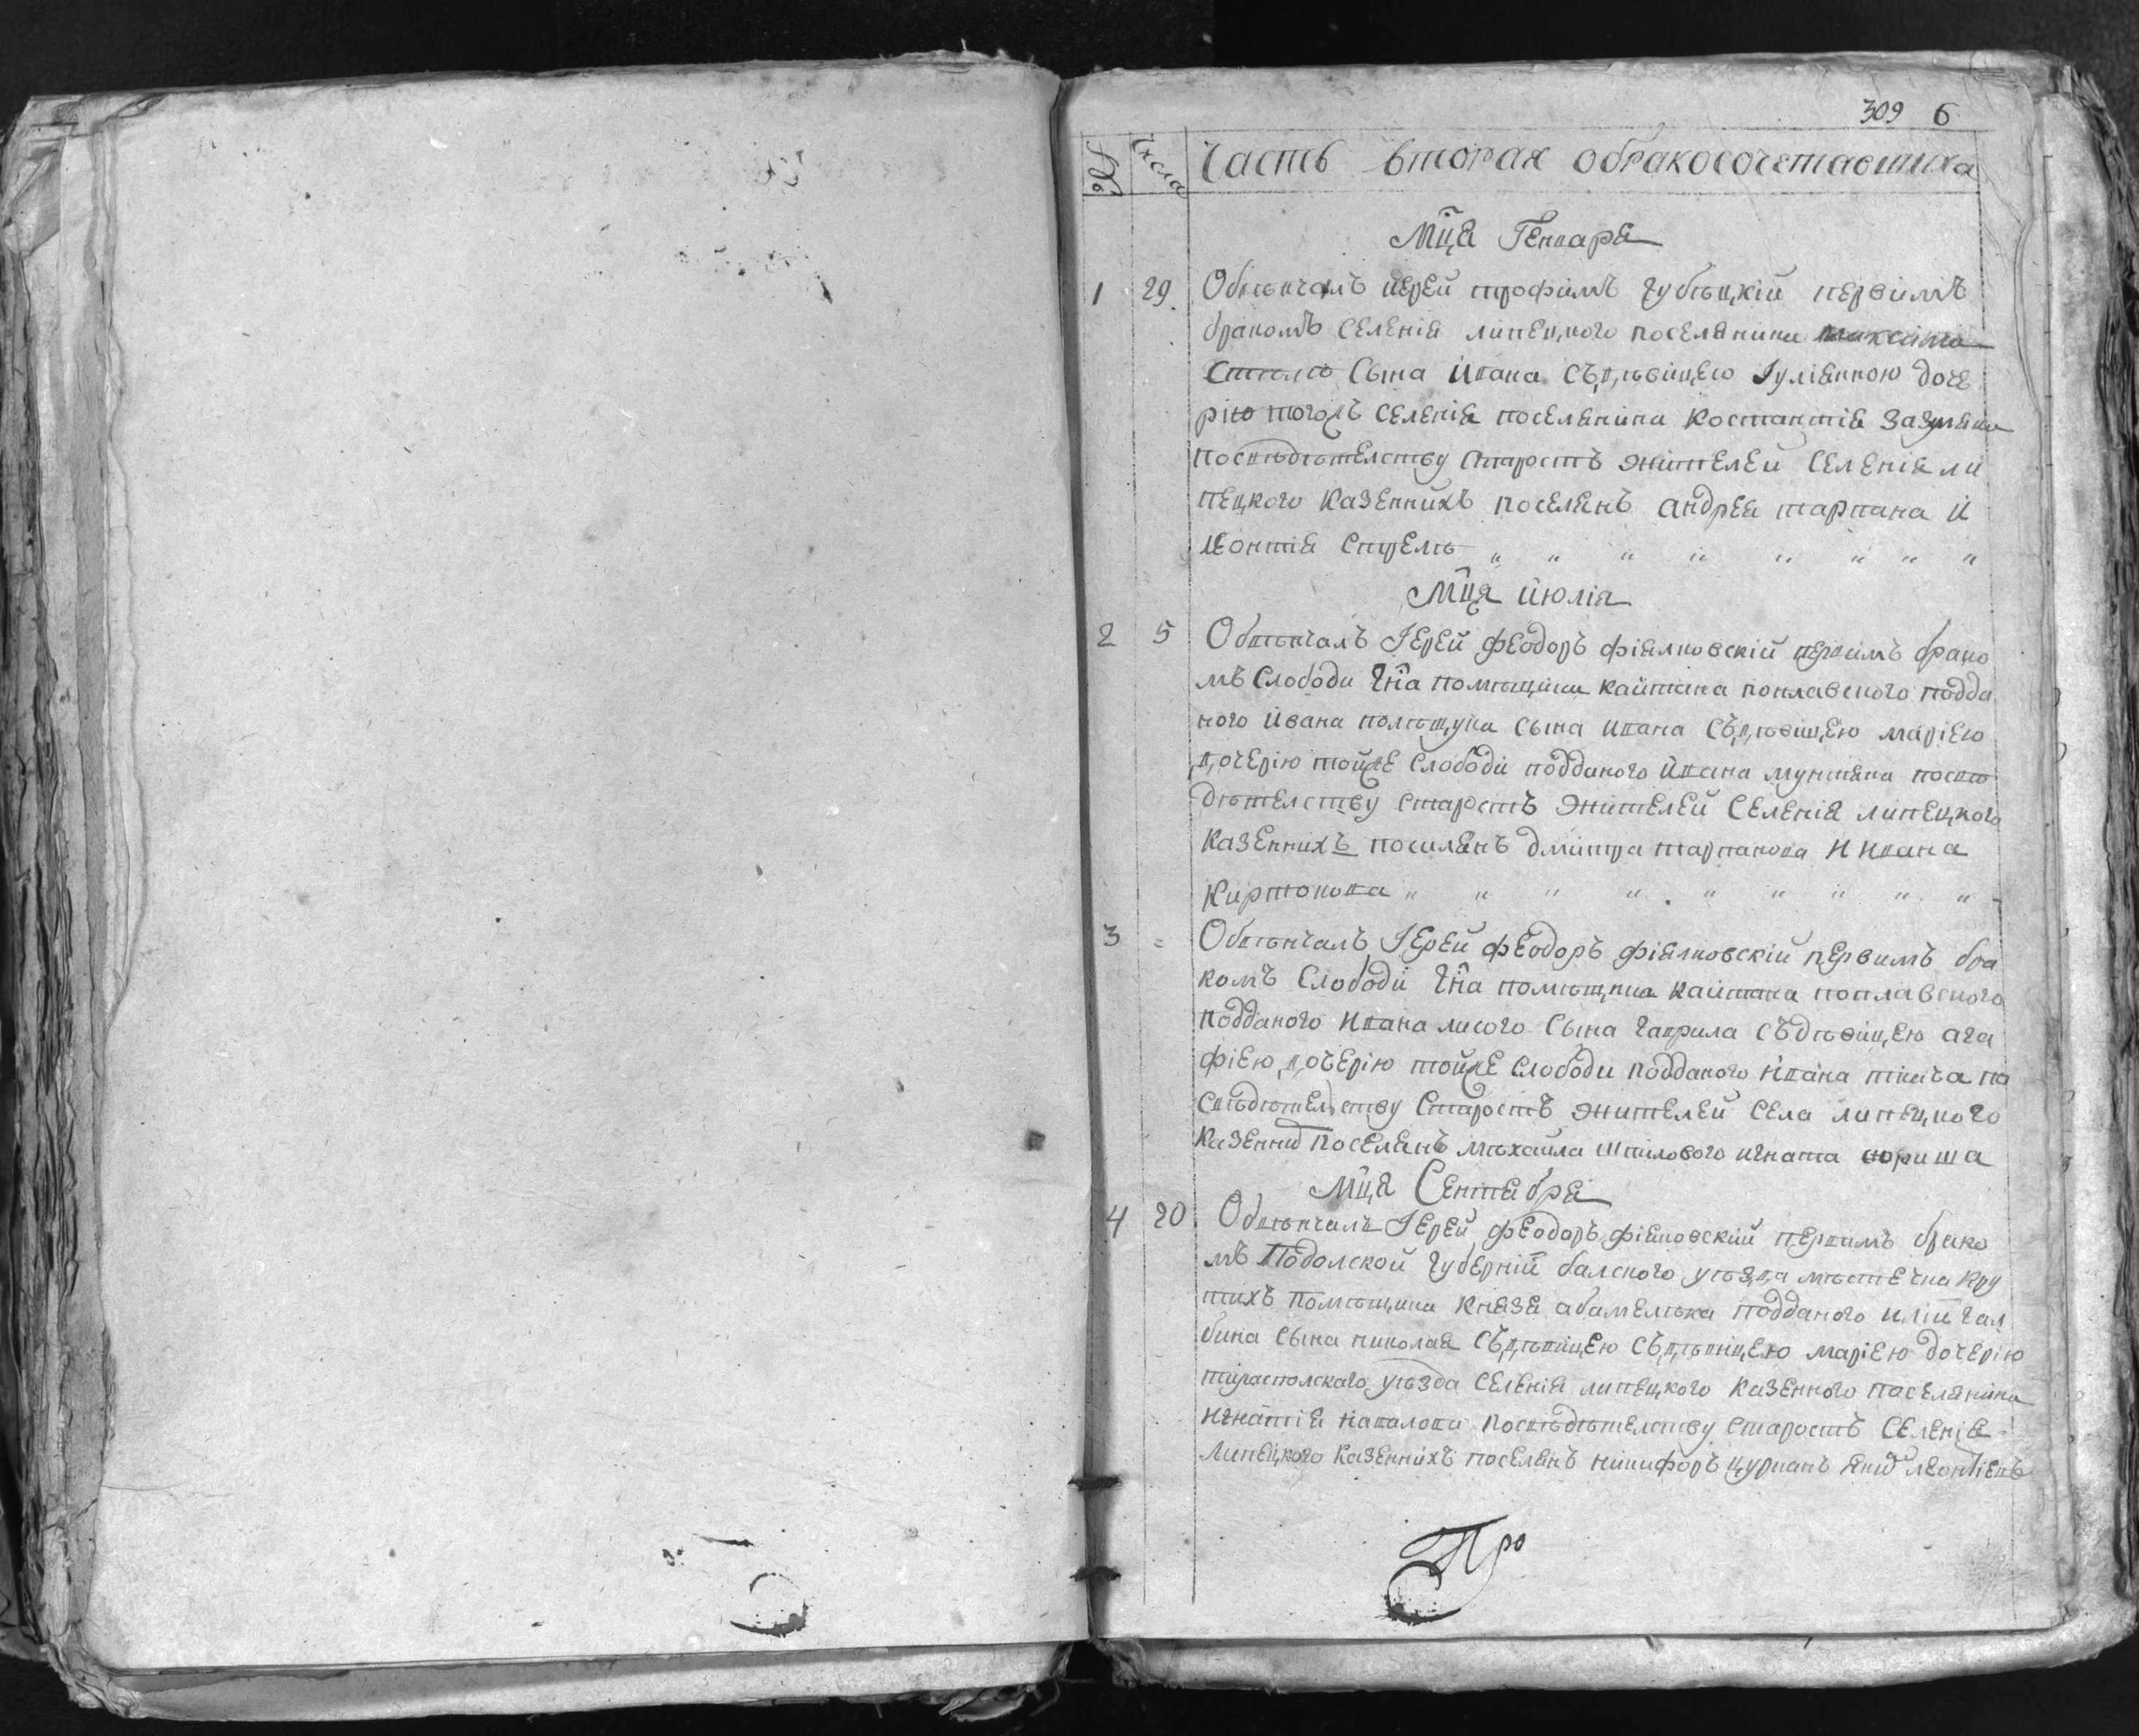 309 6
Числа Часть вторая обракосочетавшиха
Мц҃а Генвара
1 29. Обвѣнчалъ иерей трофимъ Губѣцкій первимъ
бракомъ Селенія липецкого поселянина максима
Сына ивана Съдѣвицею Іуліянною доче
рію тогожъ селенія поселянина Костантія
посвѣдѣтелству старостъ жителей Селенія ли
пецкого Казеннихъ поселянъ андрея тарпана и
леонтія Стрелѣ " " " " " " " "
Мц҃я июлія
2 5 Обвѣнчалъ Іерей феодоръ фіялковскій первимъ брако
мъ Слободи Г҃на помѣщика каитана поплавского подда
ного ивана полѣщука сына ивана Съдѣвицею маріею
дочерію тойже Слободиподданого ивана мунтяна посвѣ
дѣтелству старостъ жителей Селенія липецкого
Казеннихъ поселянъ дмитра тарпанова и ивана
Киртокова " " " " " " " " "
3 = Обвѣнчалъ Іерей феодоръ фіялковскій первимъ бра
комъ Слободи Г҃на помѣщика каитана поплавского
подданого ивана лисого Сына гаврила Съдѣвицею ага
фіею дочерію тойже Слободи подданого ивана ткача по
Свѣдѣтелству Старостъ жителей Села липецкого
Казенних поселянъ мѣхаила штилового игната
Мц҃а Сентабра
4 20 Обвѣнчалъ Іерей феодоръ фіялковскій первимъ брако
мъ Подолской губерніи балского уѣзда мѣстечка Кру
тихъ помѣщика Князя абамелѣка подданого иліи гал
бина сына николая Съдѣвицею Съдѣвицею маріею дочерію
тираспольскаго уѣзда Селенія липецкого Казенного поселянина
игнатія посвѣдѣтелству старостъ Селенія
Липецкого Казеннихъ поселянъ никифоръ цурканъ леонтіевъ
Про